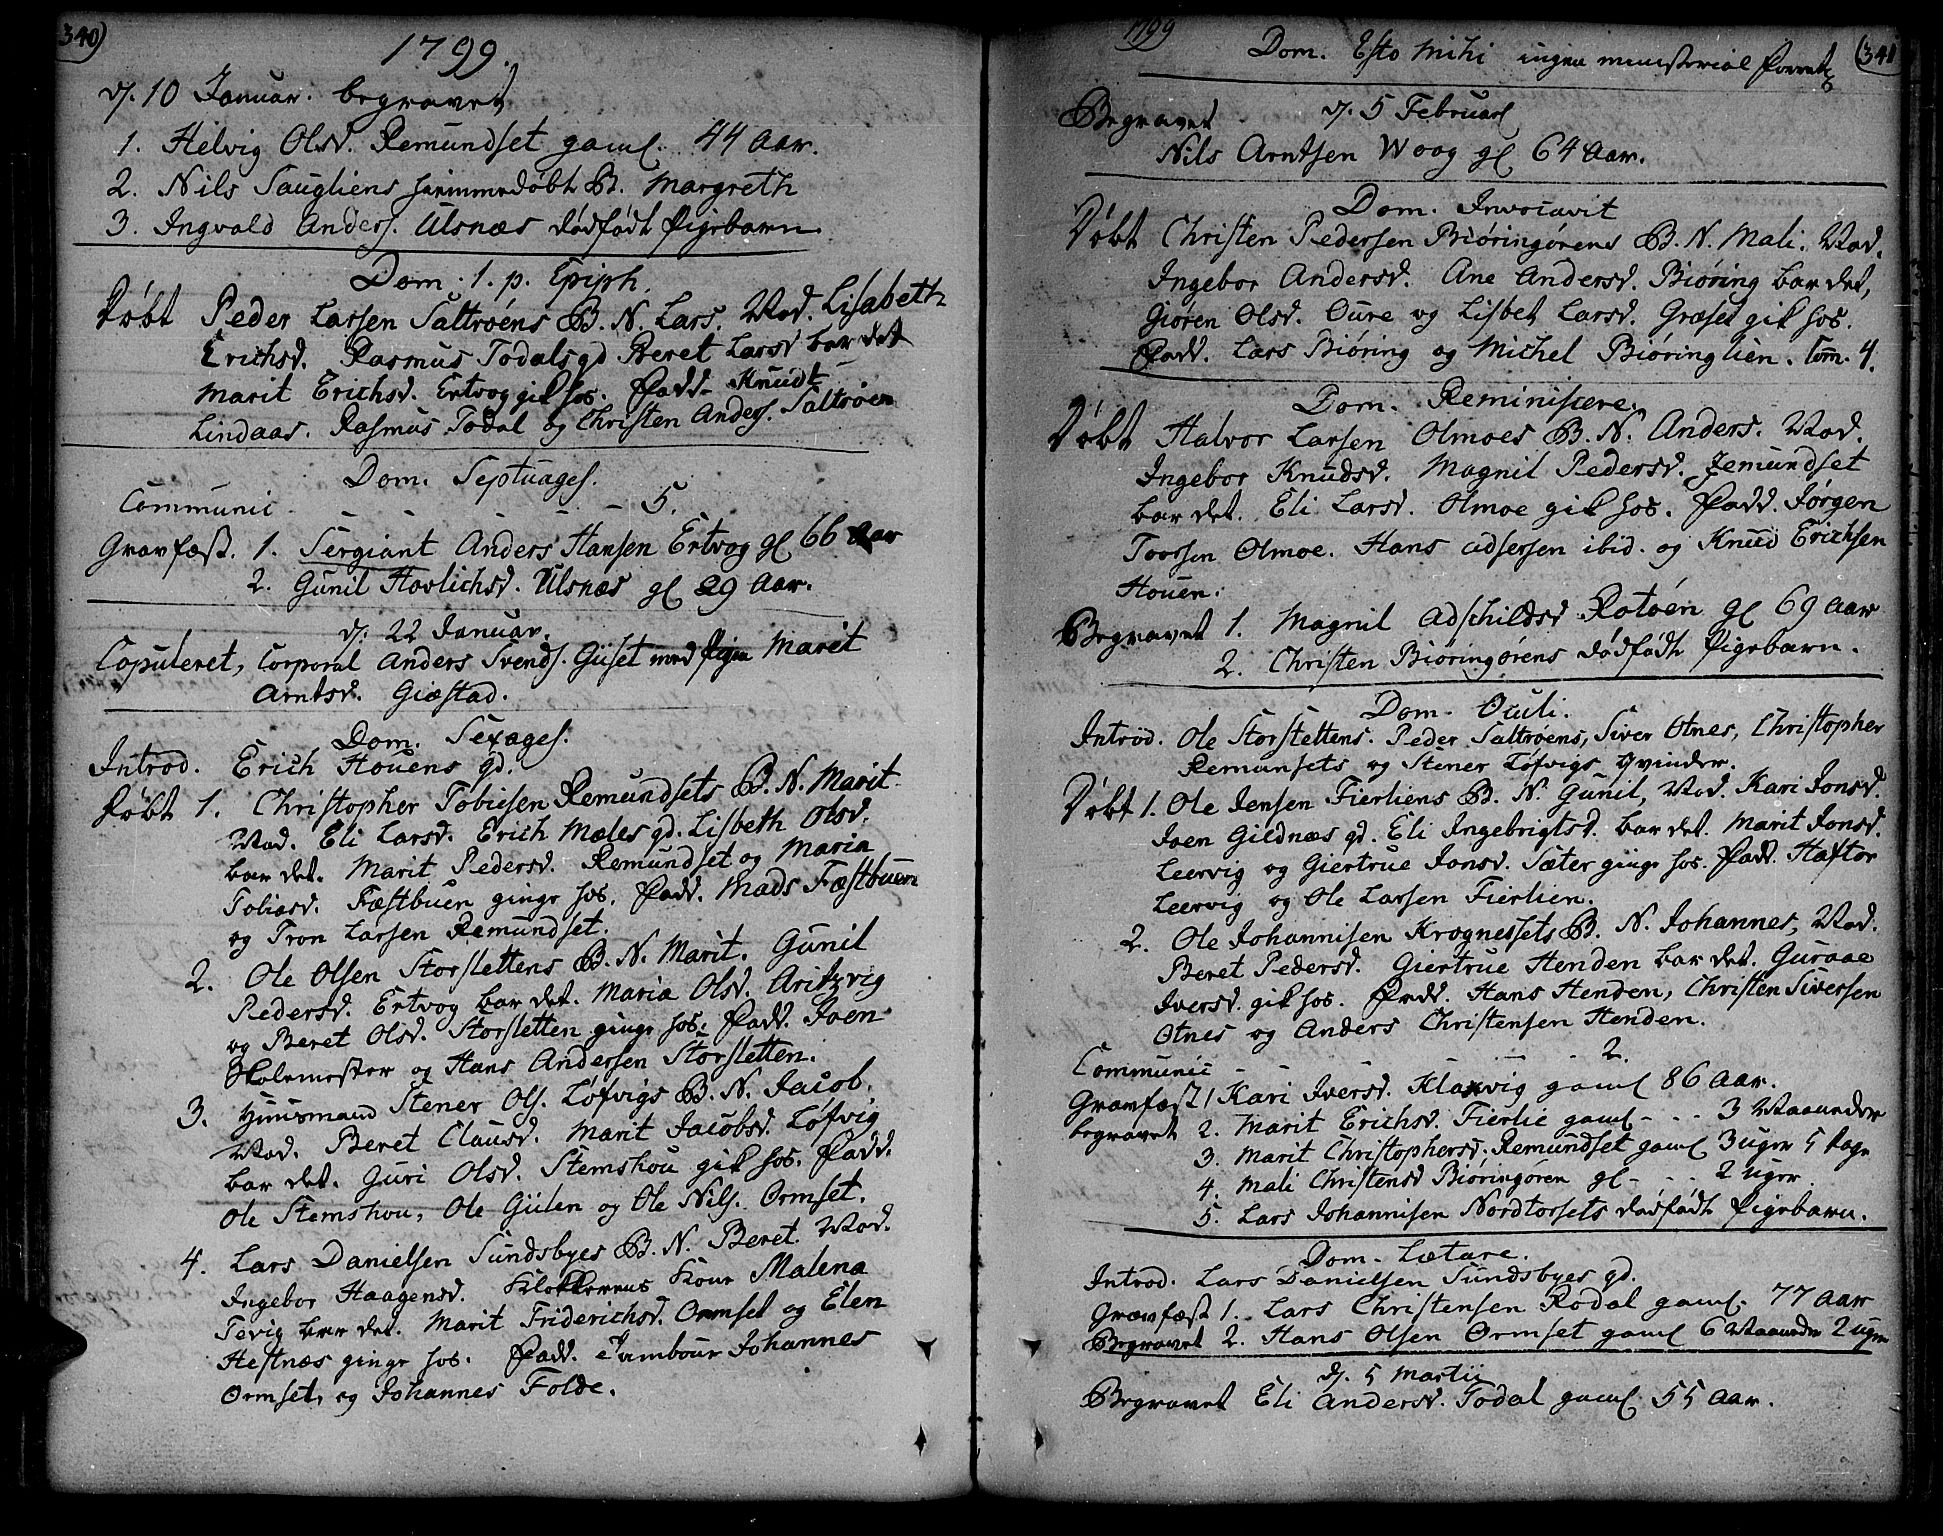 340)
1799.
d. 10 Januar. begravet
1. Helvig Olsd. Remundset gaml. 44 Aar.
2. Nils Saugliens hiemmedøbt B. Margreth
3. Ingvald Anders. Ulsnæs dødfødt Pigebarn.
Dom. 1. p. Epiph.
Døbt Peder Larsen Saltrøens B. N. Lars. Mod. Lisabeth
Erichsd. Rasmus Todals qd Beret Larsd bar det
Marit Erichsd. Ertvog gik hos. Fadd. Knudt
Lindaas. Rasmus Todal og Christen Anders. Saltrøen
Dom. Septuages.
Communic - - - - - 5.
Gravfæst. 1. Sergiant Anders Hansen Ertvog gl 66 Aar
2. Gunil Hovlichsd. Ulsnæs gl 29 Aar.
d. 22 Januar.
Copuleret, Corporal Anders Svends. Giset med Pigen Marit
Arntsd. Giæstad.
Dom. Sexages.
Introd. Erich Houens qd.
Døbt 1. Christopher Tobiesen Remundsets B. N. Marit.
Mod. Eli Larsd. Erich Mæles qd. Lisbeth Olsd.
bar det. Marit Pedersd. Remundset og Maria
Tobiasd. Fæstbuen ginge hos. Fadd. Mads Fæstbuen
og Tron Larsen Remundset.
2. Ole Olsen Storslettens B. N. Marit. Gunil
Pedersd. Ertvog bar det. Maria Olsd. Aritzvig
og Beret Olsd. Storsletten ginge hos. Fadd. Joen
Skolemester og Hans Andersen Storsletten.
3. Huusmand Stener Ols. Løfvigs B. N. Jacob.
Mod. Beret Clausd. Marit Jacobsd. Løfvig
bar det. Guri Olsd. Stemshou gik hos. Fadd.
Ole Stemshou, Ole Gulen og Ole Nils. Ormset.
4. Lars Danielsen Sundsbyes B. N. Beret. Mod.
Ingebor Haagensd. Klokkerens Kone Malena
Tevig bar det. Marit Friderichsd. Ormset og Elen
Hestnæs ginge hos. Fadd. Tambour Johannes
Ormset, og Johannes Folde.
1799
341
Dom. Esto Mihi ingen ministerial Forret.
Begravet d. 5 Februar
Nils Arntsen Woog gl 64 Aar.
Dom. Invocavit
Døbt Christen Pedersen Biøringørens B. N. Mali. Mod.
Ingebor Andersd. Ane Andersd. Biøring bar det,
Gioren Olsd. Oure og Lisbet Larsd. Græset gik hos.
Fadd. Lars Biøring og Michel Biøringlien. Com. 4.
Dom. Reminiscere.
Døbt Halvor Larsen Olmoes B. N. Anders. Mod.
Ingebor Knudsd. Magnil Pedersd. Jemundset
bar det. Eli Larsd. Olmoe gik hos. Fadd. Jørgen
Toorsen Olmoe. Hans Adsersen ibid. og Knud Erichsen
Houen.
Begravet 1. Magnil Adschildsd Rotøen gl 69 Aar
2. Christen Biøringørens dødfødt Pigebarn.
Dom. Oculi.
Introd. Ole Storslettens. Peder Saltrøens, Siver Otnes, Christopher
Remunsets og Stener Løfvigs Qvinder.
Døbt 1. Ole Jensen Fierliens B. N. Gunil, Mod. Kari Jonsd.
Joen Gildnæs qd. Eli Ingebrigtsd. bar det. Marit Jonsd.
Leervig og Giertrue Jonsd. Sæter ginge hos. Fadd. Haftor
Leervig og Ole Larsen Fierlien.
2. Ole Johannisen Krognessets B. N. Johannes, Mod.
Beret Pedersd. Giertrue Henden bar det. Guraae
Iversd. gik hos. Fadd. Hans Henden, Christen Siversen
Otnes og Anders Christensen Henden.
Communic - - - - - 2.
Gravfæst 1 Kari Iversd. Klaxvig gaml 86 Aar.
begravet 2. Marit Erichsd. Fierlie gaml - - - 3 Maaneder
3. Marit Christophersd. Remundset gaml 3 uger 5 Dage
4. Mali Christensd Biøringøren gl - - - 2 uger.
5. Lars Johannisen Nordtorsets dødfødt Pigebarn.
Dom. Lætare.
Introd. Lars Danielsen Sundsbyes qd.
Gravfæst 1. Lars Christensen Rodal gaml. 77 Aar
Begravet 2. Hans Olsen Ormset gaml 6 Maaneder 2 uger
d. 5 Martii
Begravet Eli Andersd. Todal gaml. 55 Aar.